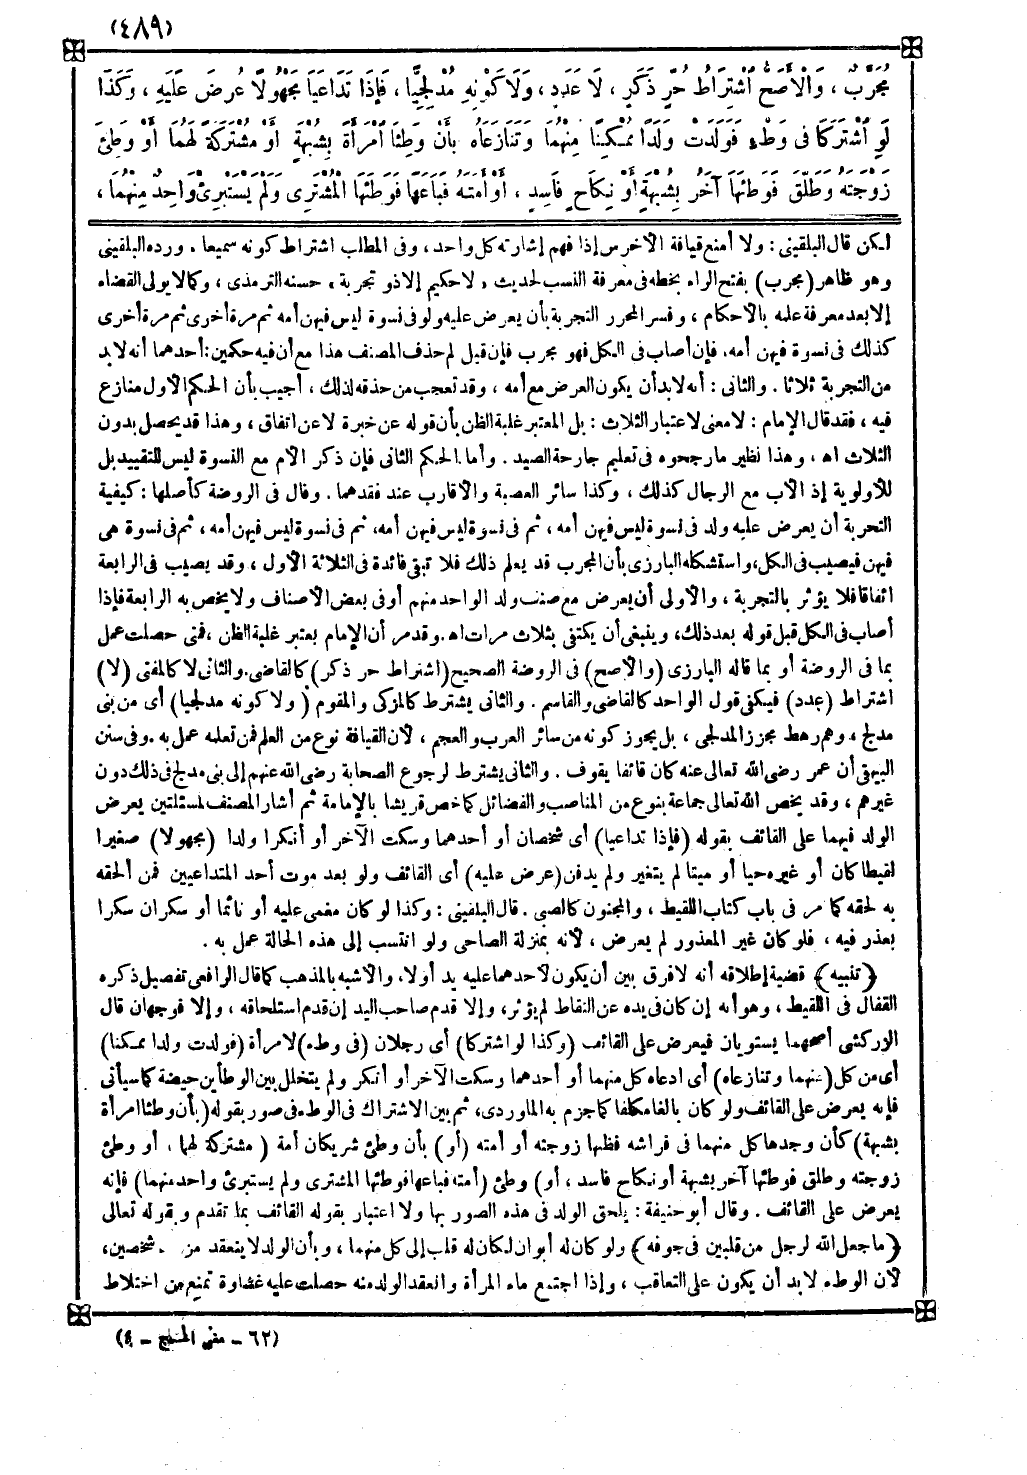 (٤٨٩)
مُجَرِّبٌ ، وَالْأَصَحُّ اشْتِرَاطُ حُرٍّ ذَكَرٍ ، لَا عَدَدٍ ، وَلَا كَوْنِهِ مُدْلِجِيًّا ، فَإِذَا تَدَاعَيَا مَجْهُولًا عُرِضَ عَلَيْهِ ، وَكَذَا
لَوِ اشْتَرَكَا فِى وَطْءٍ فَوَلَدَتْ وَلَدًا مُمْكِنًا مِنْهُمَا وَتَنَازَعَاهُ بِأَنْ وَطِئَا امْرَأَةً بِشُبْهَةٍ أَوْ مُشْتَرَكَةً لَهُمَا أَوْ وَطِئَ
زَوْجَتَهُ وَطَلَّقَ فَوَطِئَهَا آخَرُ بِشُبْهَةٍ أَوْ نِكَاحٍ فَاسِدٍ ، أَوْ أَمَتَهُ فَبَاعَهَا فَوَطِئَهَا الْمُشْتَرِى وَلَمْ يَسْتَبْرِئْ وَاحِدٌ مِنْهُمَا ،
لكن قال البلقينى : ولا أمنع قيافة الأخرس إذا فهم إشارته كل واحد ، وفى المطلب اشتراط كونه سميعا . ورده البلقينى
وهو ظاهر (مجرب) بفتح الراء بخطه فى معرفة النسب لحديث « لا حكيم إلا ذو تجربة » حسنه الترمذى ، وكما لا يولى القضاء
إلا بعد معرفة علمه بالأحكام ، وفسر المحرر التجربة بأن يعرض عليه ولد فى نسوة ليس فيهن أمه ثم مرة أخرى ثم مرة أخرى
كذلك فى نسوة فيهن أمه، فإن أصاب فى الكل فهو مجرب فإن قيل لم حذف المصنف هذا مع أن فيه حكمين : أحدهما أنه لابد
من التجربة ثلاثا . والثانى : أنه لابد أن يكون العرض مع أمه ، وقد تعجب من حذفه لذلك ، أجيب بأن الحكم الأول منازع
فيه ، فقد قال الإمام : لا معنى لاعتبار الثلاث : بل المعتبر غلبة الظن بأن قوله عن خبرة لا عن اتفاق ، وهذا قد يحصل بدون
الثلاث اه ، وهذا نظير ما رجحوه فى تعليم جارحة الصيد . وأما الحكم الثانى فإن ذكر الأم مع النسوة ليس للتقييد بل
للأولوية إذ الأب مع الرجال كذلك ، وكذا سائر العصبة والأقارب عند فقدهما . وقال فى الروضة كأصلها : كيفية
التجربة أن يعرض عليه ولد فى نسوة ليس فيهن أمه ، ثم فى نسوة ليس فيهن أمه، ثم فى نسوة ليس فيهن أمه ، ثم فى نسوة هى
فيهن فيصيب فى الكل، واستشكله البارزى بأن المجرب قد يعلم ذلك فلا تبقى فائدة فى الثلاثة الأول ، وقد يصيب فى الرابعة
اتفاقا فلا يؤثر بالتجربة ، والأولى أن يعرض مع صنف ولد الواحد منهم أو فى بعض الأصناف ولا يخص به الرابعة فإذا
أصاب فى الكل قبل قوله بعد ذلك، وينبغى أن يكتفى بثلاث مرات اه . وقد مر أن الإمام يعتبر غلبة الظن ، فمتى حصلت عمل
بما فى الروضة أو بما قاله البارزى (والأصح) فى الروضة الصحيح (اشتراط حر ذكر) كالقاضى . والثانى لا كالمفتى (لا)
اشتراط (عدد) فيكفى قول الواحد كالقاضى والقاسم . والثانى يشترط كالمزكى والمقوم (ولا كونه مدلجيا) أى من بنى
مدلج ، وهم رهط مجزز المدلجى ، بل يجوز كونه من سائر العرب والعجم ، لأن القيافة نوع من العلم فمن تعلمه عمل به . وفى سنن
البيهقى أن عمر رضى الله تعالى عنه كان قائفا يقوف . والثانى يشترط لرجوع الصحابة رضى الله عنهم إلى بنى مدلج فى ذلك دون
غيرهم ، وقد يخص الله تعالى جماعة بنوع من المناصب والفضائل كما خص قريشا بالإمامة ثم أشار المصنف لمسئلتين يعرض
الولد فيهما على القائف بقوله (فإذا تداعيا) أى شخصان أو أحدهما وسكت الآخر أو أنكرا ولدا (مجهولا) صغيرا
لقيطا كان أو غيره حيا أو ميتا لم يتغير ولم يدفن (عرض عليه) أى القائف ولو بعد موت أحد المتداعيين فمن ألحقه
به لحقه كما مر فى باب كتاب اللقيط ، والمجنون كالصبى . قال البلقينى : وكذا لو كان مغمى عليه أو نائما أو سكران سكرا
يعذر فيه ، فلو كان غير المعذور لم يعرض ، لأنه بمنزلة الصاحى ولو انتسب إلى هذه الحالة عمل به .
﴿ تنبيه ﴾ قضية إطلاقه أنه لا فرق بين أن يكون لأحدهما عليه يد أولا، والأشبه بالمذهب كما قال الرافعى تفصيل ذكره
القفال فى اللقيط ، وهو أنه إن كان فى يده عن التقاط لم يؤثر، وإلا قدم صاحب اليد إن قدم استلحاقه ، وإلا فوجهان قال
الزركشى أصحهما يستويان فيعرض على القائف (وكذا لو اشتركا) أى رجلان (فى وطء) لامرأة (فولدت ولدا ممكنا)
أى من كل (منهما وتنازعاه) أى ادعاه كل منهما أو أحدهما وسكت الآخر أو أنكر ولم يتخلل بين الوطأين حيضة كما سيأتى
فإنه يعرض على القائف ولو كان بالغا مكلفا كما جزم به الماوردى، ثم بين الاشتراك فى الوطء فى صور بقوله (بأن وطئا امرأة
بشبهة) كأن وجدها كل منهما فى فراشه فظنها زوجته أو أمته (أو) بأن وطئ شريكان أمة ( مشتركة لهما ، أو وطئ
زوجته وطلق فوطئها آخر بشبهة أو نكاح فاسد ، أو) وطئ (أمته فباعها فوطئها المشترى ولم يستبرئ واحد منهما) فإنه
يعرض على القائف . وقال أبو حنيفة : يلحق الولد فى هذه الصور بها ولا اعتبار بقوله القائف بما تقدم وبقوله تعالى
﴿ ما جعل الله لرجل من قلبين فى جوفه ﴾ ولو كان له أبوان لكان له قلب إلى كل منهما ، وبأن الولد لا ينعقد من شخصين،
لأن الوطء لابد أن يكون على التعاقب ، وإذا اجتمع ماء المرأة وانعقد الولد منه حصلت عليه غشاوة تمنع من اختلاط
(٦٢ - مغنى المحتاج - ٤)